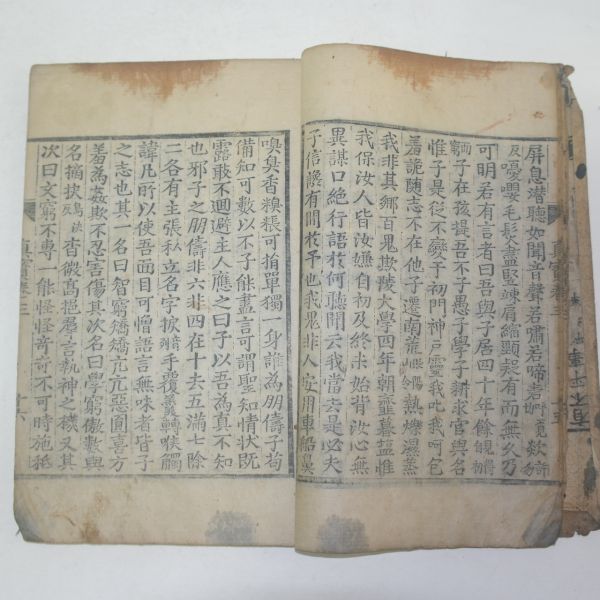 屏息潜聽如聞音聲若嘯若啼
反嚘嚶毛髮盡竪竦肩縮頸疑有而無久乃
可明若有言者曰吾與子居四十年餘
子在孩提吾不子愚子學子耕求官與名
惟子是從不變于初門神戶靈我叱我呵包
羞詭隨志不在他子遷南荒熱爍濕蒸
我非其鄉百鬼欺陵大學四年朝虀暮鹽惟
我保汝人皆汝嫌自初及終未始背汝心無
異謀口絶行語於何聽聞云我當去是必夫
子信讒有間於予也我鬼非人安用車船鼻
嗅臭香糗粻可捐單獨一身誰為朋儔子苟
備知可數以不子能盡言可謂聖知情狀既
露敢不迴避主人應之曰子以吾為真不知
也邪子之朋儔非六非四在十去五滿七除
二各有主張私立名字捩手覆羹轉喉觸
諱凡所以使吾面目可憎語言無味者皆子
之志也其一名曰智窮矯矯亢亢惡圓喜方
羞為姦欺不忍害傷其次名曰學窮傲數與
名摘抉杳微高挹羣言執神之機又其
次曰文窮不專一能怪怪奇奇不可時施秪
真寶卷三